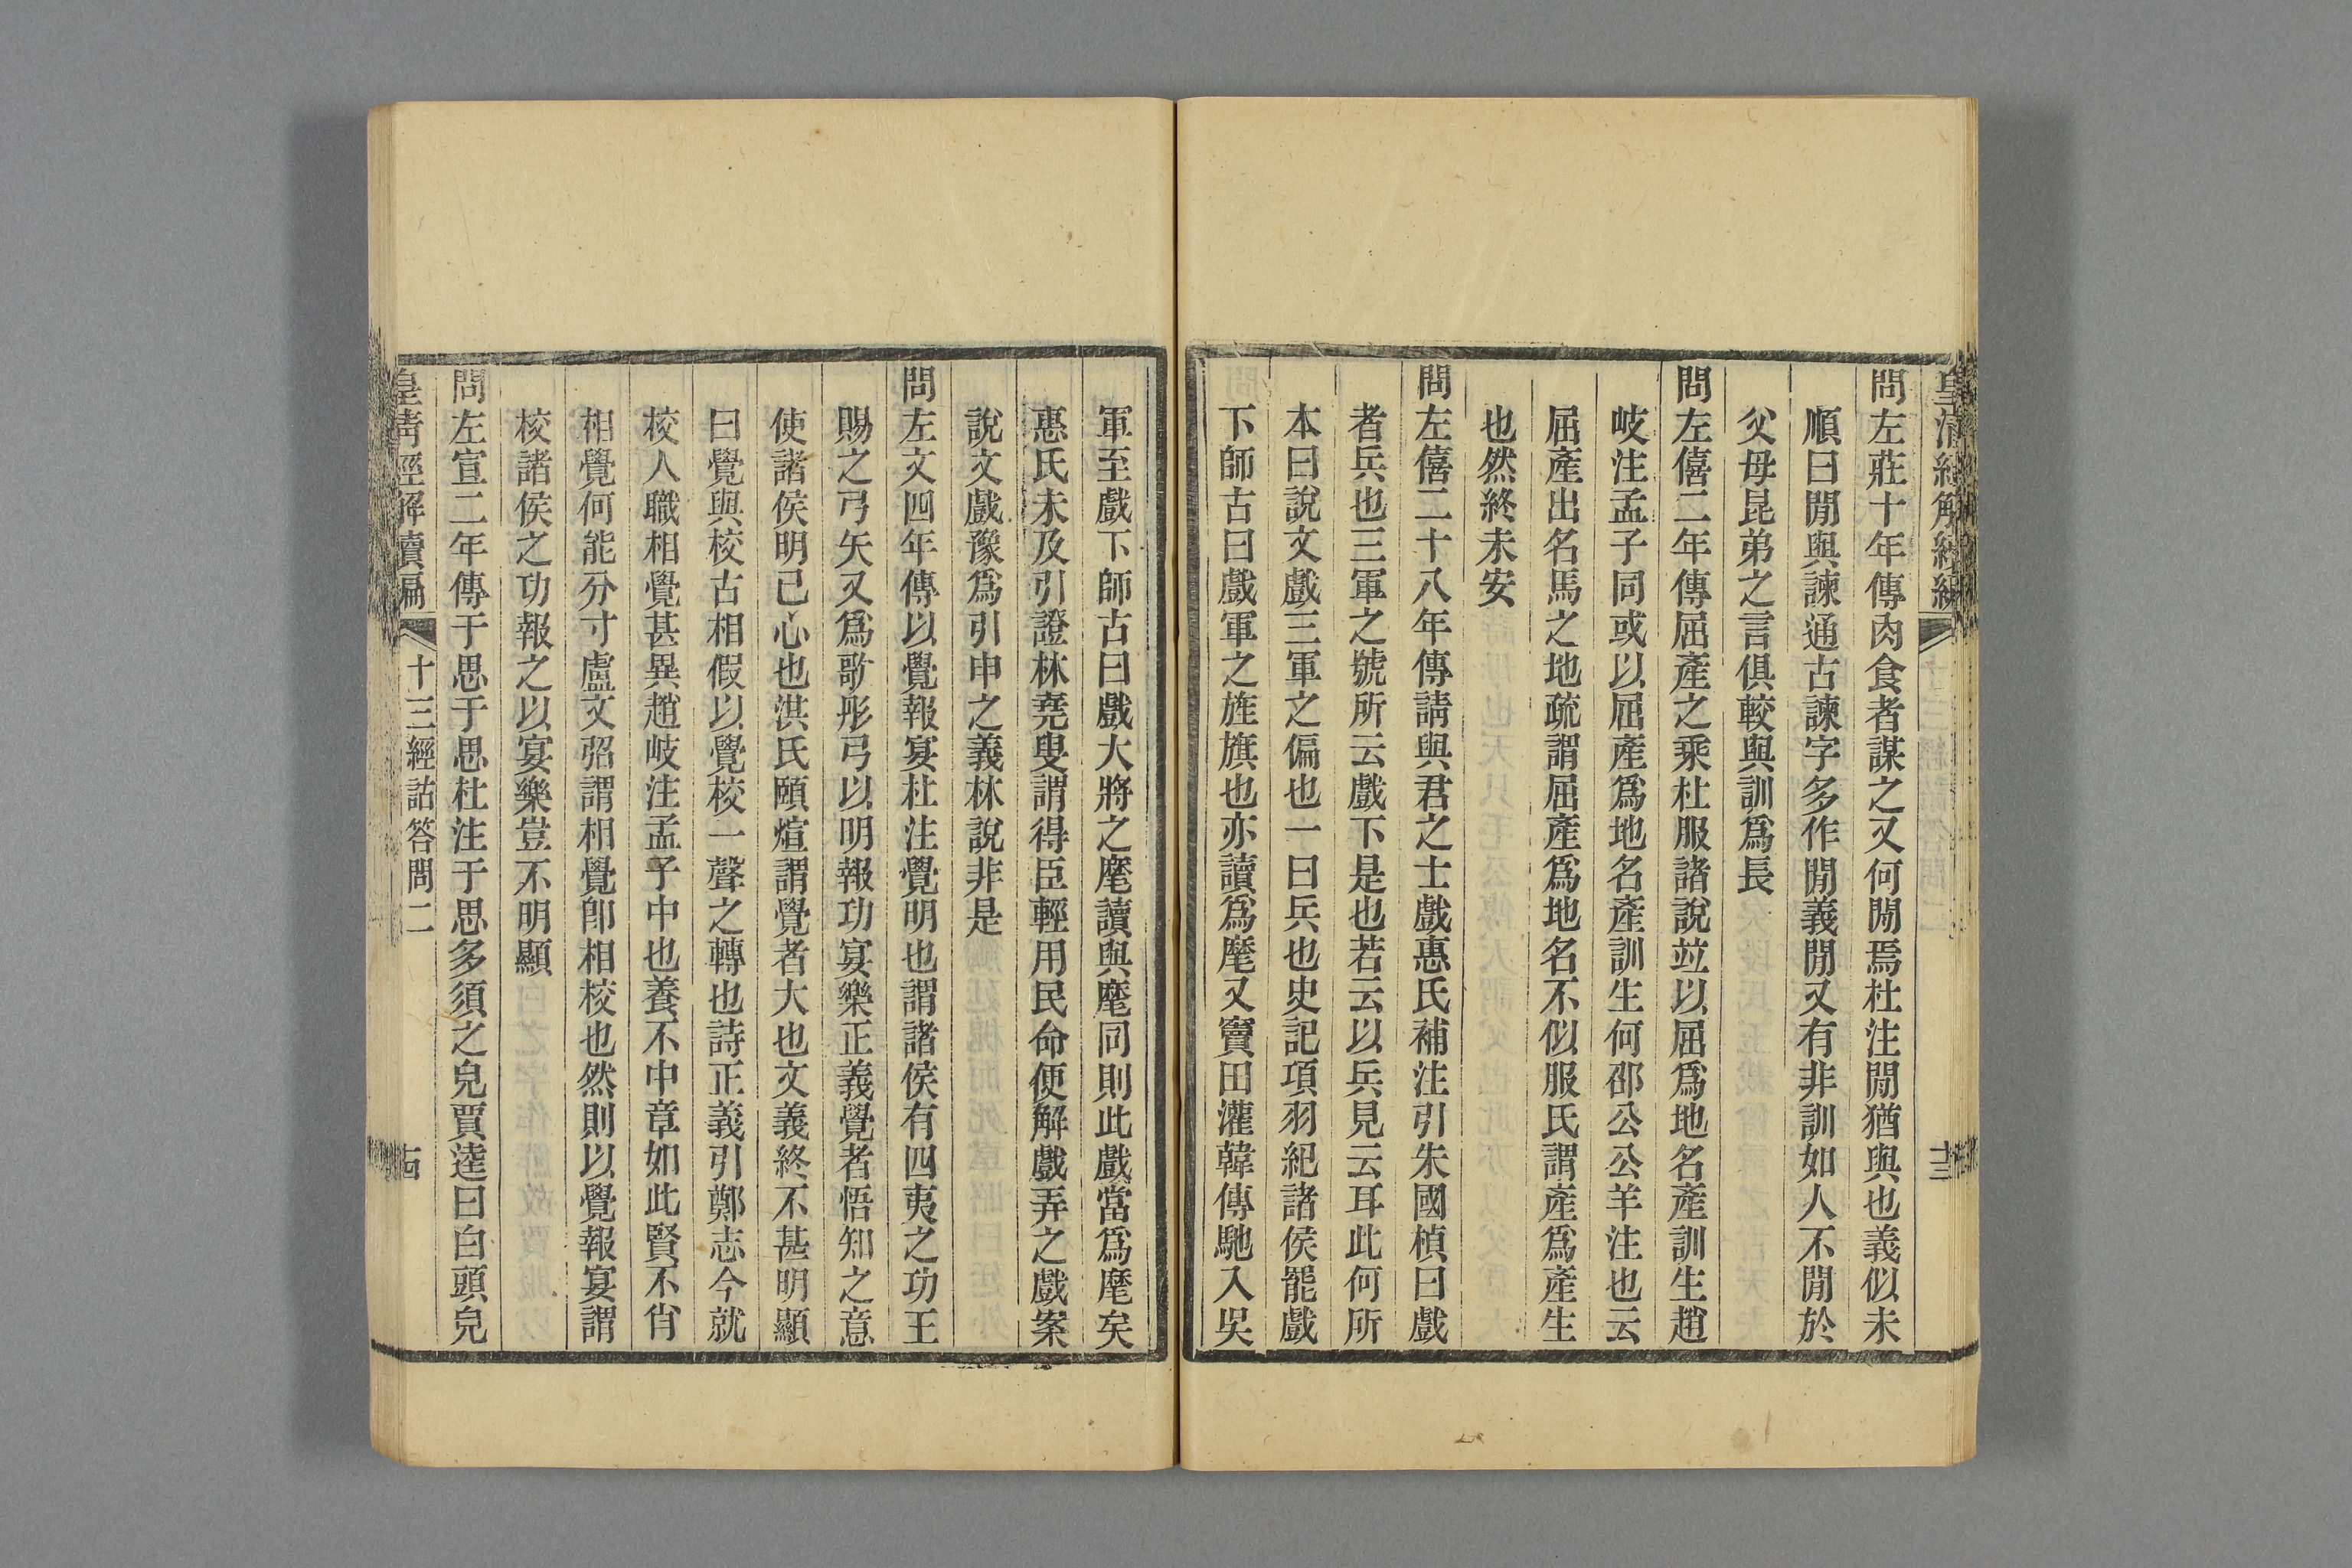 問左莊十年傳肉食者謀之又何閒焉杜注閒猶與也義似未
順曰閒與諫通古諫字多作閒義閒又有非訓如人不閒於
父母昆弟之言俱較與訓爲長
問左僖二年傳屈產之乘杜服諸說竝以屈爲地名產訓生趙
岐注孟子同或以屈產爲地名產訓生何邵公公羊注也云
屈產出名馬之地疏謂屈產爲地名不似服氏謂產爲產生
也然終未安
問左僖二十八年傳請與君之士戲惠氏補注引朱國楨曰戲
者兵也三軍之號所云戲下是也若云以兵見云耳此何所
本曰說文戲三軍之偏也一曰兵也史記項羽紀諸侯罷戲
下師古曰戲軍之旌旗也亦讀爲麾又竇田灌韓傳馳入吳
軍至戲下師古曰戲大將之麾讀與麾同則此戲當爲麾矣
惠氏未及引證林堯叟謂得臣輕用民命便解戲弄之戲案
說文戲豫爲引申之義林說非是
問左文四年傳以覺報宴杜注覺明也謂諸侯有四夷之功王
賜之弓矢又爲歌彤弓以明報功宴樂正義覺者悟知之意
使諸侯明己心也洪氏頤煊謂覺者大也文義終不甚明顯
曰覺與校古相假以覺校一聲之轉也詩正義引鄭志今就
校人職相覺甚異趙岐注孟子中也養不中章如此賢不肖
相覺何能分寸盧文弨謂相覺卽相校也然則以覺報宴謂
校諸侯之功報之以宴樂豈不明顯
問左宣二年傳于思于思杜注于思多須之皃賈逵曰白頭皃
皇清經解續編
十三經詁答問二
十四